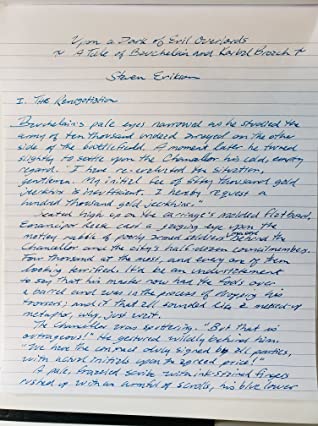 Upon a Dark of Evil Overlords
~ A Tale of Bauchelain and Korbal Broach ~
Steven Erikson
I. The Renegotiation
Bauchelain's pale eyes narrowed as he studied the
army of ten thousand undead arrayed on the other
side of the battlefield. A moment later he turned
slightly to settle upon the Chancellor his cold, empty
regard. "I have re-evaluated the situation,
gentlemen. My initial fee of sixty thousand gold
is insufficient. I hereby request a
hundred thousand gold
Seated high up on the carriage's
Emancipor Reese cast a jaundiced eye upon the
motley rabble of poorly armed behind the
Chancellor and the city's half-dozen councilmembers.
Four thousand at the most, and every one of them
looking terrified. It'd be an understatement
to say that his master now had the fools over
a barrel and was in the process of dropping his
trousers; and if that all sounded like a mixed-up
metaphor, why, just wait.
The Chancellor was spluttering. "But that is
outrageous!" He gestured wildly behind him.
"We have the contract duly signed by all parties,
with actual initials upon the agreed price!"
A pale, frazzled scribe with ink-stained fingers
rushed up with an armful of scrolls, his blue lower